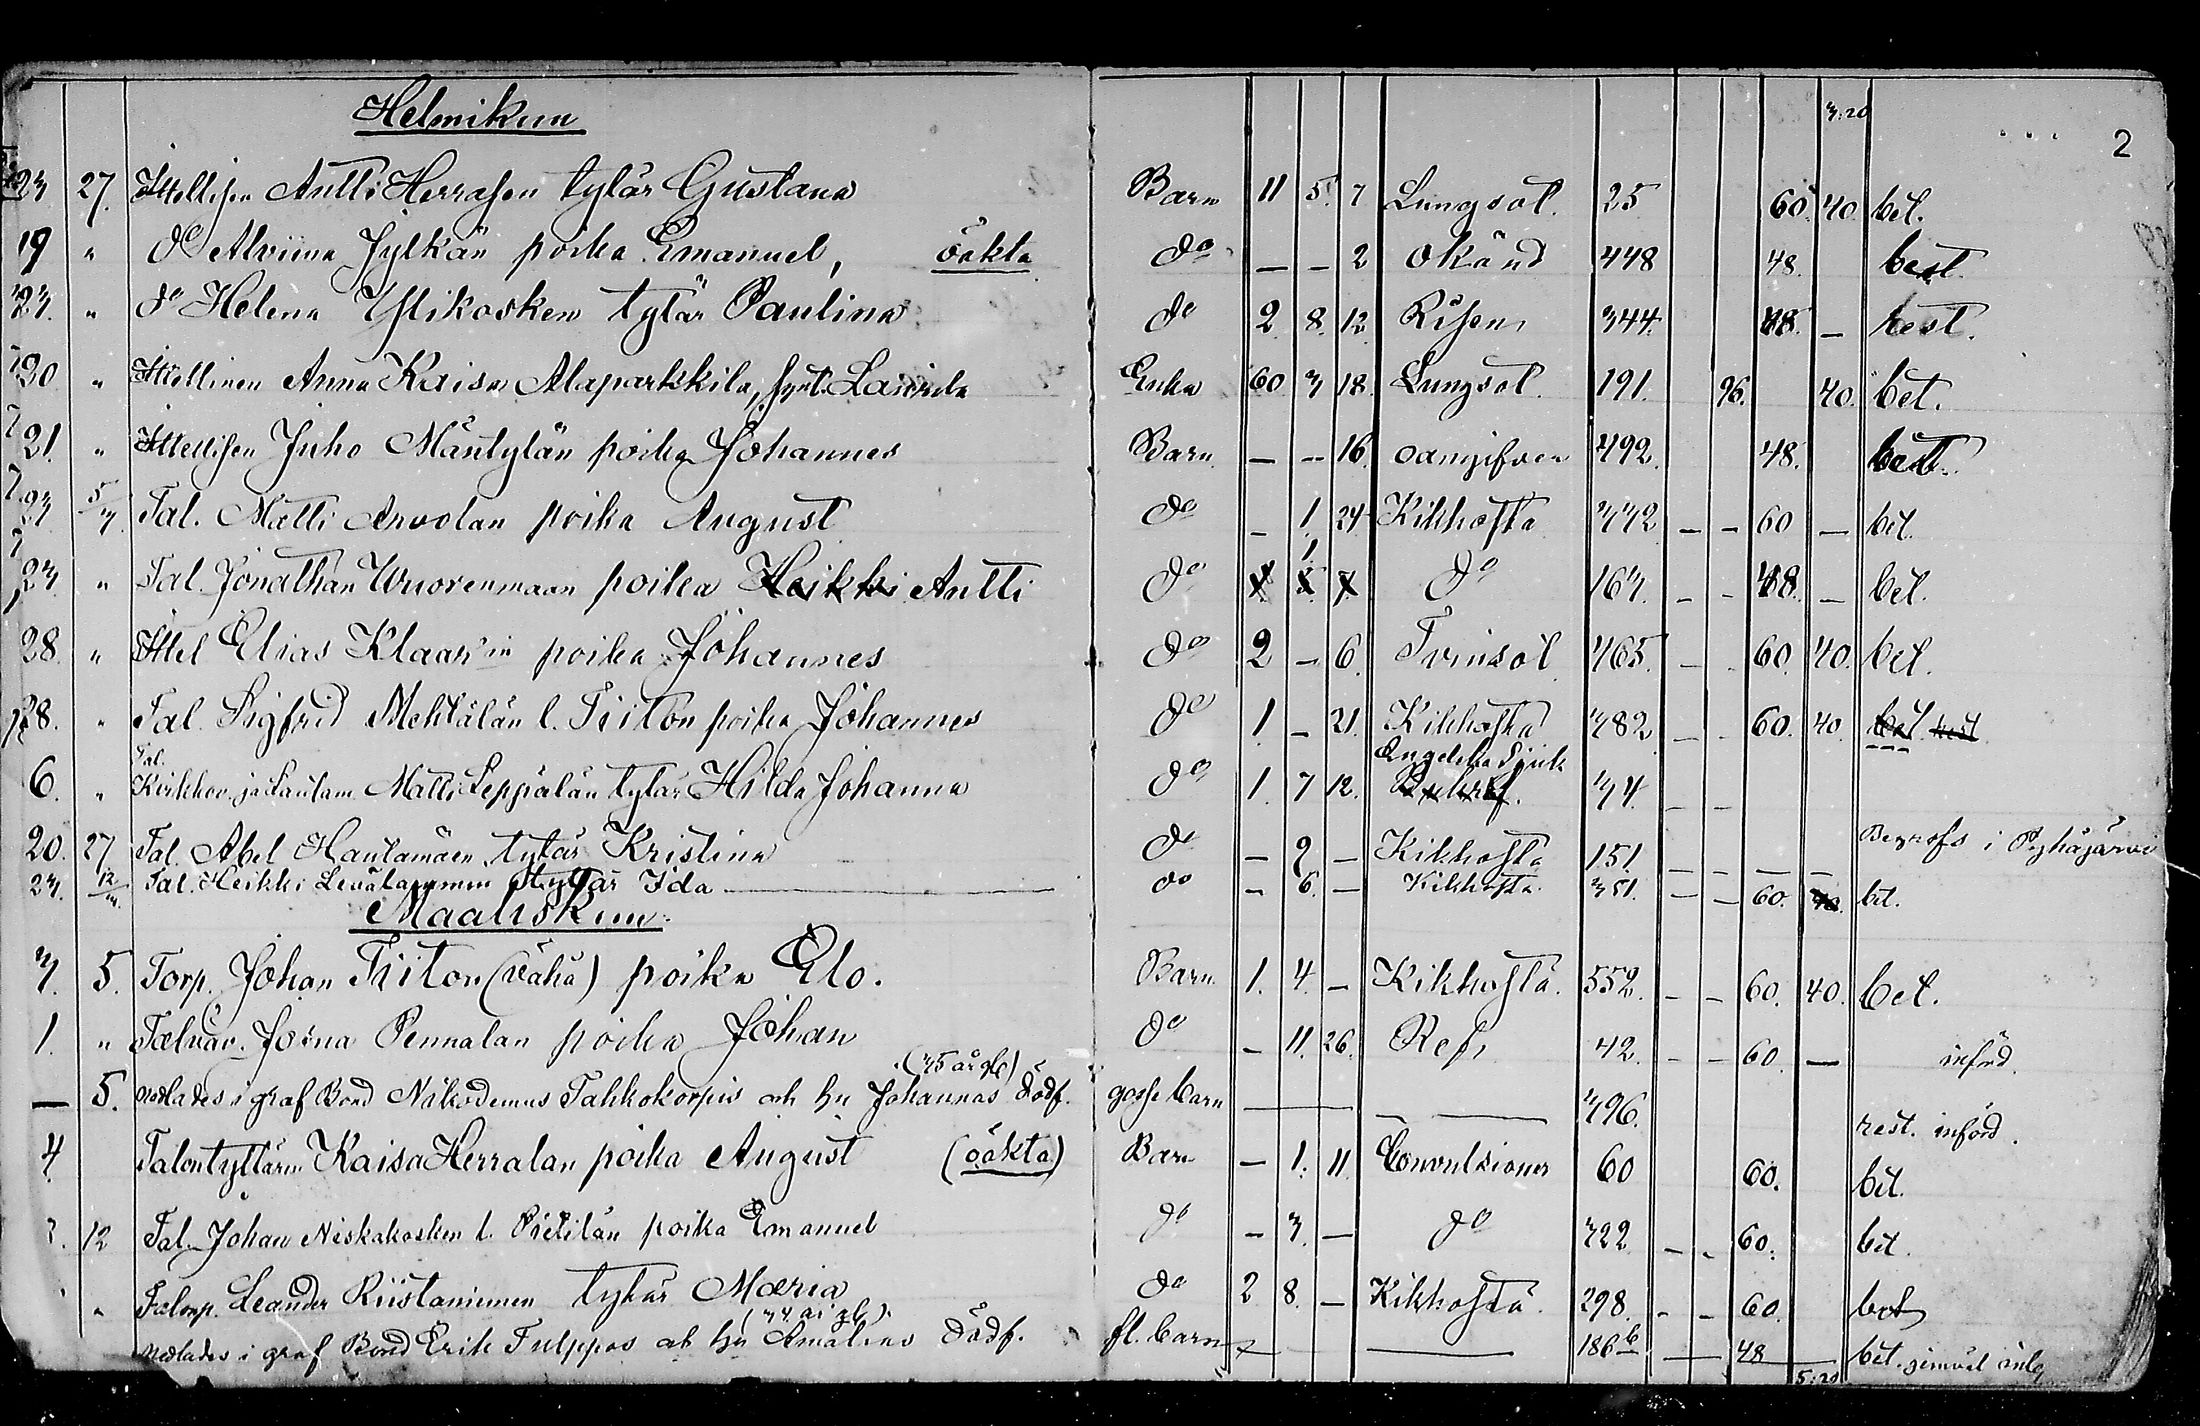 Helmikuu
3:20
2
23 27. Ittellisen Antti Herrasen tytär Gustava Barn 11 5. 7 Lungsot. 25 60. 40. bet.
19 " do Alviina Jylkän poika Emanuel, oäkta do — — 2 okänd 448 48. best.
23. " do Helena Ylikosken tytär Paulina do 2. 8. 12 Risen, 344. 48. — rest.
20 " Ittellinen Anna Kaisa Alapartkkila, Enka 60. 3 18. Lungsot. 191. 96. 40. bet.
21. " Ittellisen Juho Mäntylän poika Johannes Barn. — — 16. oangifven 492. 48. best.
23 5/3. Tal. Matti Arvolan poika August do — 1. 24 Kikhosta 342 — — 60 — bet.
23. " Tal. Jonathan Wuorenmaan poika Heikki Antti do 1 do 163. — — 48. — bet.
28. " Ittel Elias Klaar'in poika Johannes do 2 — 6. Tvinsot 365. — 60. 40. bet.
28. " Tal. Sigfrid Mehtälän l. Triton poika Johannes do 1 — 21. Kikhosta 382 — — 60. 40. bet. rest
6. " Tal. Kirkkov. ja Lautam. Matti Leppälän tytär Hilda Johanna do 1. 7 12. Engelska Sjuk 34. — —
20. 27. Tal. Abel Hautamäen tytär Kristina do — 2 — Kikhosta 151. — — — — Begrofs i Pyhäjärvi
23. 12/3. Tal. Heikki Levälammen tytär Ida do — 6. — Kikhosta. 351. — — 60. 40. bet.
Maaliskuu.
3. 5. Torp. Johan Triton (Vähä) poika Elo. Barn. 1. 4. — Kikhosta. 552. — — 60. 40. bet.
1. " Talväv. Josua Pennalan poika Johan do — 11. 26. Ref, 42. — — 60. — införd.
(35 år gl.)
— 5. nedlades i graf Bond Nikodemus Tahkokorpis och hu Johannas dödf. gosse barn — — — 396. rest. införd.
4. Talontyttären Kaisa Herralan poika August (oäkta) Barn — 1. 11. Convulsioner 60 60. bet.
12 Tal. Johan Niskakosken l. Pietilän poika Emanuel do — 3. — do 322 — — 60. bet.
" Talonp. Leander Riistaniemen tytär Maria do 2 8. — Kikhosta. 298. — — 60. bet
nedlades i graf Bond Erik Tulppos och hu Amalias dödf. fl. barn — — 186 b — 48 — bet.
5:20